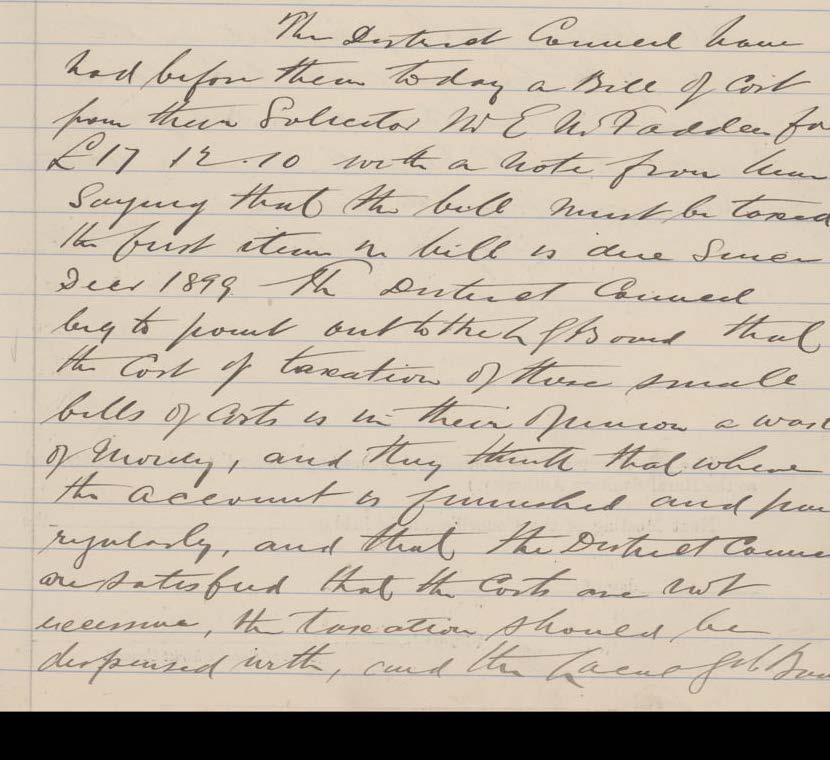 The District Council have
had before them today a Bill of Cost
from their Solicitor Mr E McFadden for
£17 12.10 with a note from him
Saying that the bill must be taxed
the first item in bill is due Since
Decr 1899 The District Council
beg to point out to the L G Board that
the Cost of taxation of these small
bills of Costs is in their Opinion a was
of Money, and they think that where
the account is furnished and
regularly, and that the District Counc
are satisfied that the Costs are not
excessive, the taxation should be
dispensed with, and the Local Govt Boa